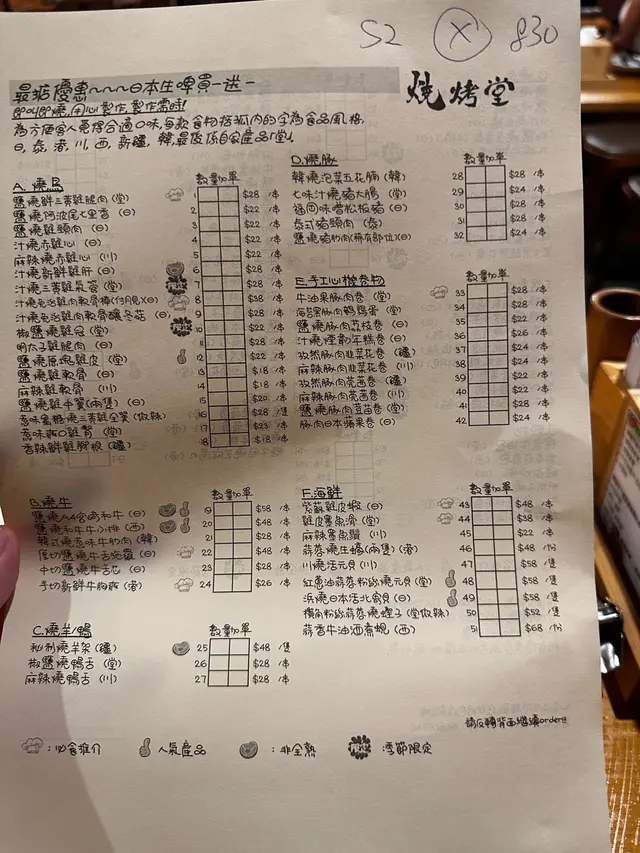 S2 X 830
最抵優惠~~~日本生啤買一送一
即叫即燒,用心製作,製作需時!
燒烤堂
為方便客人覓得合適口味,每款食物括弧內的字為食品風格,
日,泰,港,川,西,新疆,韓,最後係自家產品「堂」.
A.燒鳥
數量加單
鹽燒鮮三黃雞腿肉(堂) 1 $28 /串
鹽燒阿波尾七里香(日) 2 $22 /串
鹽燒雞頸肉(日) 3 $22 /串
汁燒赤雞心(日) 4 $22 /串
麻辣燒赤雞心(川) 5 $22 /串
汁燒新鮮雞肝(日) 6 $28 /串
汁燒三黃雞(堂) 7 $28 /串
汁燒老治雞肉軟骨棒(日) 8 $38 /串
汁燒老治雞肉軟骨釀冬菇(日) 9 $28 /串
椒鹽燒雞(堂) 10 $22 /串
明太子雞腿肉(日) 11 $28 /串
鹽燒原塊雞皮(堂) 12 $22 /串
鹽燒雞軟骨(日) 13 $18 /串
麻辣雞軟骨(川) 14 $18 /串
鹽燒雞牛翼(兩隻)(日) 15 $20 /串
惹味蜜糖燒三黃雞全翼(堂辣) 16 $28 /隻
惹味雞(堂) 17 $23 /串
香辣鮮雞腳板(疆) 18 $18 /串
B.燒牛
數量加單
鹽燒A4宮崎和牛(日) 19 $58 /串
鹽燒和牛牛小排(西) 20 $48 /串
韓式燒惹味牛肋肉(韓) 21 $28 /串
厚切鹽燒牛舌(日) 22 $48 /串
中切鹽燒牛舌芯(日) 23 $28 /串
手切新鮮牛(港) 24 $26 /串
C.燒羊/鴨
數量加單
秘制燒羊架(疆) 25 $48 /隻
椒鹽燒鴨舌(堂) 26 $28 /串
麻辣燒鴨舌(川) 27 $28 /串
D.燒豚
數量加單
韓燒泡菜五花腩(韓) 28 $28 /串
七味汁燒豬大腸(堂) 29 $24 /串
福岡味噌松板豬(日) 30 $28 /串
泰式豬頸肉(泰) 31 $28 /串
鹽燒豬肋肉(稀有部位)(日) 32 $24 /串
E.手工心機卷物
數量加單
牛油果豚肉卷(堂) 33 $28 /串
海苔黑豚肉鵪鶉蛋(堂) 34 $28 /串
鹽燒豚肉荔枝卷(日) 35 $22 /串
汁燒煙韌年糕卷(日) 36 $26 /串
孜然豚肉韭菜花卷(疆) 37 $24 /串
麻辣豚肉韭菜花卷(川) 38 $24 /串
孜然豚肉芫茜卷(疆) 39 $22 /串
麻辣豚肉芫茜卷(川) 40 $22 /串
鹽燒豚肉豆苗卷(堂) 41 $22 /串
豚肉日本蘋果卷(日) 42 $24 /串
F.海鮮
數量加單
紫蘇雞皮蝦(日) 43 $48 /串
雞皮墨魚滑(堂) 44 $38 /串
麻辣墨魚鬚(川) 45 $22 /串
蒜蓉燒生蠔(兩隻)(港) 46 $48 /份
川燒活元貝(川) 47 $58 /隻
紅蔥油蒜蓉粉絲燒元貝(堂) 48 $58 /隻
浜燒日本活北寄貝(日) 49 $58 /隻
欖角粉絲蒜蓉燒蟶子(堂微辣) 50 $52 /隻
蒜香牛油酒煮蜆(西) 51 $68 /份
請反轉背面繼續order!!!
:必食推介 :人氣產品 :非全熟 限定 :季節限定